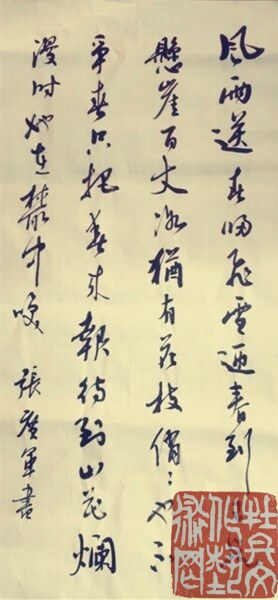 風雨送春归飛雪迎春到已是
懸崖百丈冰猶有花枝俏〻也不
爭春只把春来報待到山花爛
漫时她在叢中咲
張廣軍書